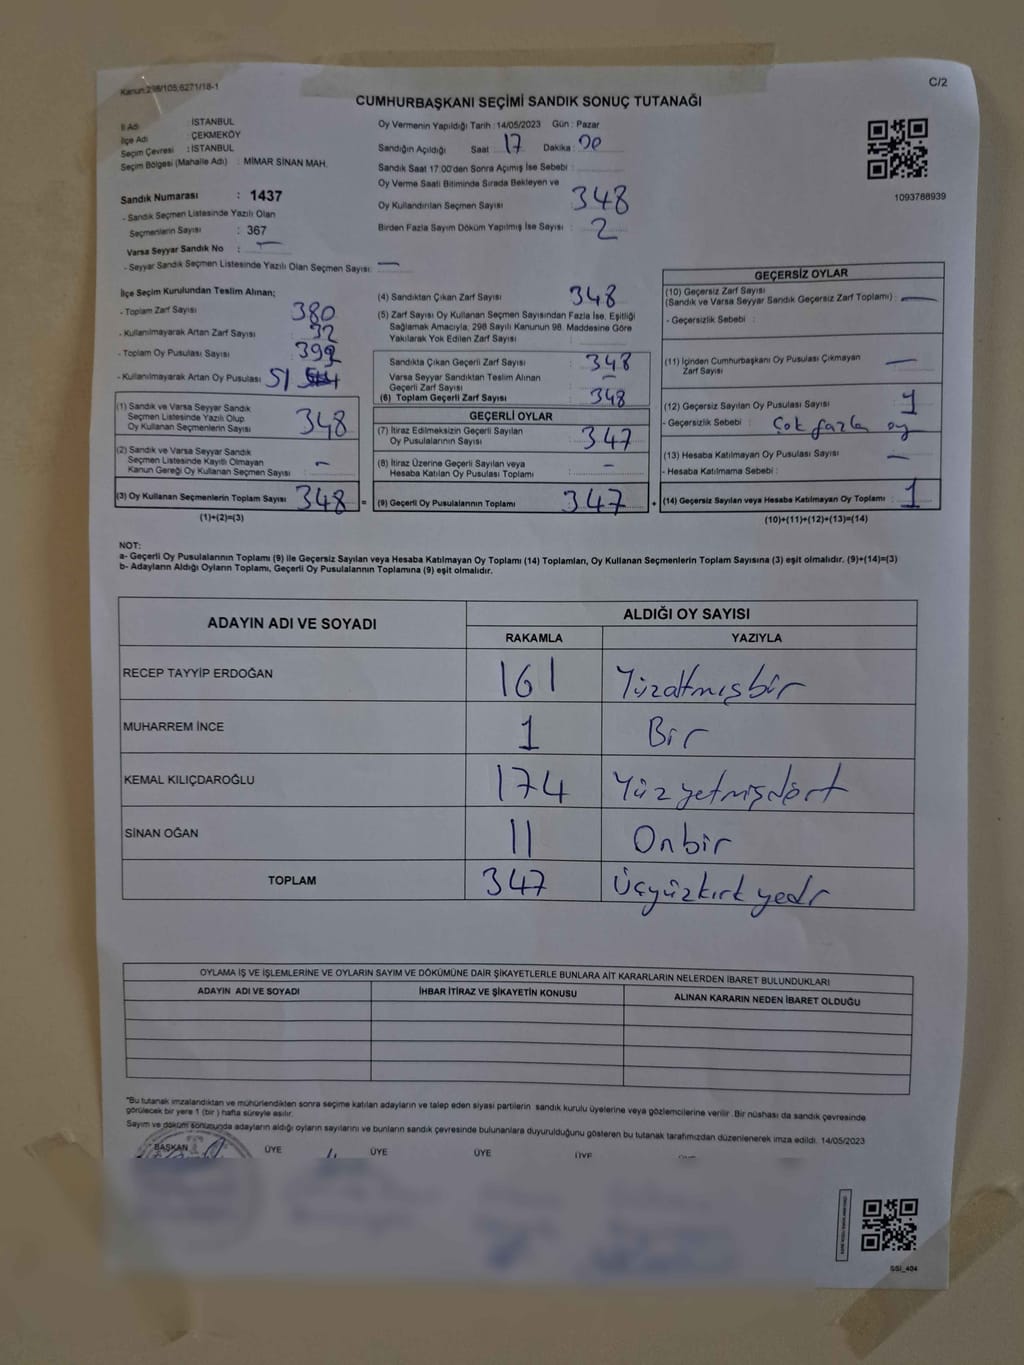 Kanun:298/105;6271/18-1
C/2
CUMHURBAŞKANI SEÇİMİ SANDIK SONUÇ TUTANAĞI
İl Adı : İSTANBUL
İlçe Adı : ÇEKMEKÖY
Seçim Çevresi : İSTANBUL
Seçim Bölgesi (Mahalle Adı) : MİMAR SİNAN MAH.
Oy Vermenin Yapıldığı Tarih : 14/05/2023 Gün : Pazar
Sandığın Açıldığı Saat : 17 Dakika : 00
Sandık Saat 17.00'den Sonra Açımış İse Sebebi :
Oy Verme Saati Bitiminde Sırada Bekleyen ve
Oy Kullandırılan Seçmen Sayısı : 348
Birden Fazla Sayım Döküm Yapılmış İse Sayısı : 2
1093788939
Sandık Numarası : 1437
- Sandık Seçmen Listesinde Yazılı Olan
Seçmenlerin Sayısı : 367
Varsa Seyyar Sandık No : —
- Seyyar Sandık Seçmen Listesinde Yazılı Olan Seçmen Sayısı: —
İlçe Seçim Kurulundan Teslim Alınan;
- Toplam Zarf Sayısı : 380
- Kullanılmayarak Artan Zarf Sayısı : 32
- Toplam Oy Pusulası Sayısı : 399
- Kullanılmayarak Artan Oy Pusulası : 51
(1) Sandık ve Varsa Seyyar Sandık
Seçmen Listesinde Yazılı Olup
Oy Kullanan Seçmenlerin Sayısı : 348
(2) Sandık ve Varsa Seyyar Sandık
Seçmen Listesinde Kayıtlı Olmayan
Kanun Gereği Oy Kullanan Seçmen Sayısı : —
(3) Oy Kullanan Seçmenlerin Toplam Sayısı : 348 =
(1)+(2)=(3)
(4) Sandıktan Çıkan Zarf Sayısı : 348
(5) Zarf Sayısı Oy Kullanan Seçmen Sayısından Fazla İse, Eşitliği
Sağlamak Amacıyla, 298 Sayılı Kanunun 98. Maddesine Göre
Yakılarak Yok Edilen Zarf Sayısı :
Sandıkta Çıkan Geçerli Zarf Sayısı : 348
Varsa Seyyar Sandıktan Teslim Alınan
Geçerli Zarf Sayısı : —
(6) Toplam Geçerli Zarf Sayısı : 348
GEÇERLİ OYLAR
(7) İtiraz Edilmeksizin Geçerli Sayılan
Oy Pusulalarının Sayısı : 347
(8) İtiraz Üzerine Geçerli Sayılan veya
Hesaba Katılan Oy Pusulası Toplamı : —
(9) Geçerli Oy Pusulalarının Toplamı : 347 +
GEÇERSİZ OYLAR
(10) Geçersiz Zarf Sayısı
(Sandık ve Varsa Seyyar Sandık Geçersiz Zarf Toplamı) : —
- Geçersizlik Sebebi :
(11) İçinden Cumhurbaşkanı Oy Pusulası Çıkmayan
Zarf Sayısı : —
(12) Geçersiz Sayılan Oy Pusulası Sayısı : 1
- Geçersizlik Sebebi : Çok fazla oy
(13) Hesaba Katılmayan Oy Pusulası Sayısı : —
- Hesaba Katılmama Sebebi :
(14) Geçersiz Sayılan veya Hesaba Katılmayan Oy Toplamı : 1
(10)+(11)+(12)+(13)=(14)
NOT:
a- Geçerli Oy Pusulalarının Toplamı (9) ile Geçersiz Sayılan veya Hesaba Katılmayan Oy Toplamı (14) Toplamları, Oy Kullanan Seçmenlerin Toplam Sayısına (3) eşit olmalıdır. (9)+(14)=(3)
b- Adayların Aldığı Oyların Toplamı, Geçerli Oy Pusulalarının Toplamına (9) eşit olmalıdır.
ADAYIN ADI VE SOYADI ALDIĞI OY SAYISI
RAKAMLA YAZIYLA
RECEP TAYYİP ERDOĞAN 161 Yüzaltmışbir
MUHARREM İNCE 1 Bir
KEMAL KILIÇDAROĞLU 174 Yüzyetmişdört
SİNAN OĞAN 11 Onbir
TOPLAM 347 Üçyüzkırkyedi
OYLAMA İŞ VE İŞLEMLERİNE VE OYLARIN SAYIM VE DÖKÜMÜNE DAİR ŞİKAYETLERLE BUNLARA AİT KARARLARIN NELERDEN İBARET BULUNDUKLARI
ADAYIN ADI VE SOYADI İHBAR İTİRAZ VE ŞİKAYETİN KONUSU ALINAN KARARIN NEDEN İBARET OLDUĞU
"Bu tutanak imzalandıktan ve mühürlendikten sonra seçime katılan adayların ve talep eden siyasi partilerin sandık kurulu üyelerine veya gözlemcilerine verilir. Bir nüshası da sandık çevresinde
görülecek bir yere 1 (bir) hafta süreyle asılır.
Sayım ve döküm sonucunda adayların aldığı oyların sayılarını ve bunların sandık çevresinde bulunanlara duyurulduğunu gösteren bu tutanak tarafımızdan düzenlenerek imza edildi. 14/05/2023
BAŞKAN ÜYE ÜYE ÜYE ÜYE
SSI_404